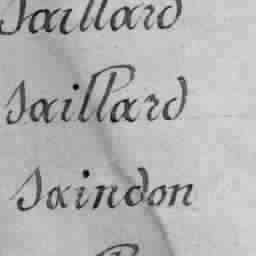 Saillard
Saillard
Saindon